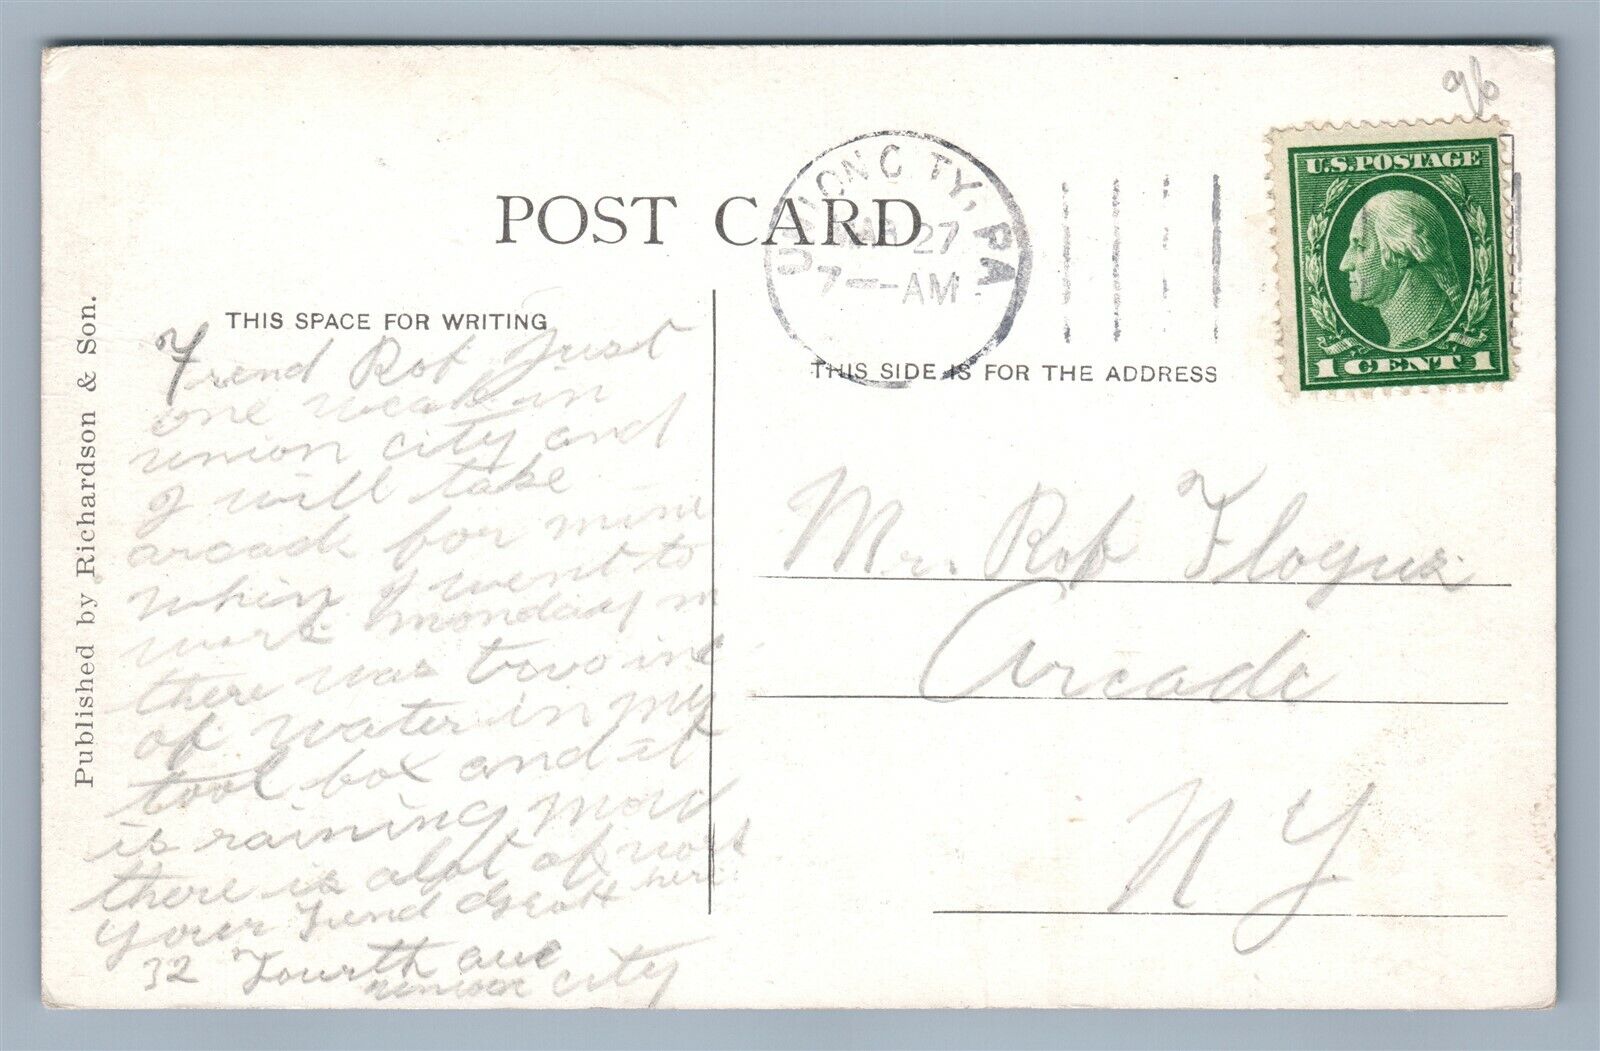 POST CARD
UNION C TY, PA
MAR 27
7—AM
U.S. POSTAGE
1 CENT 1
THIS SPACE FOR WRITING
THIS SIDE IS FOR THE ADDRESS
Published by Richardson & Son.
Frend Rob Just
one weak in
union city and
I will take
arcade for mine
when I went to
work monday m
there was two inc
of water in my
tool box and it
is raining now
there is alot of work
here
Your Friend
32 Fourth ave
union city
Mr. Rob
Arcade
N Y